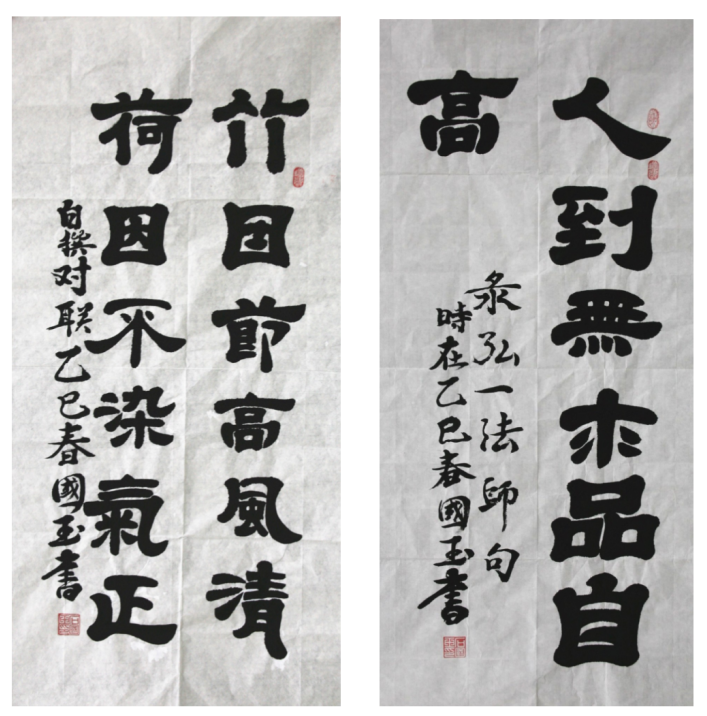 竹因節高風清
荷因不染氣正
自撰对联乙巳春國玉書
人到無求品自
高
彔弘一法師句
時在乙巳春國玉書